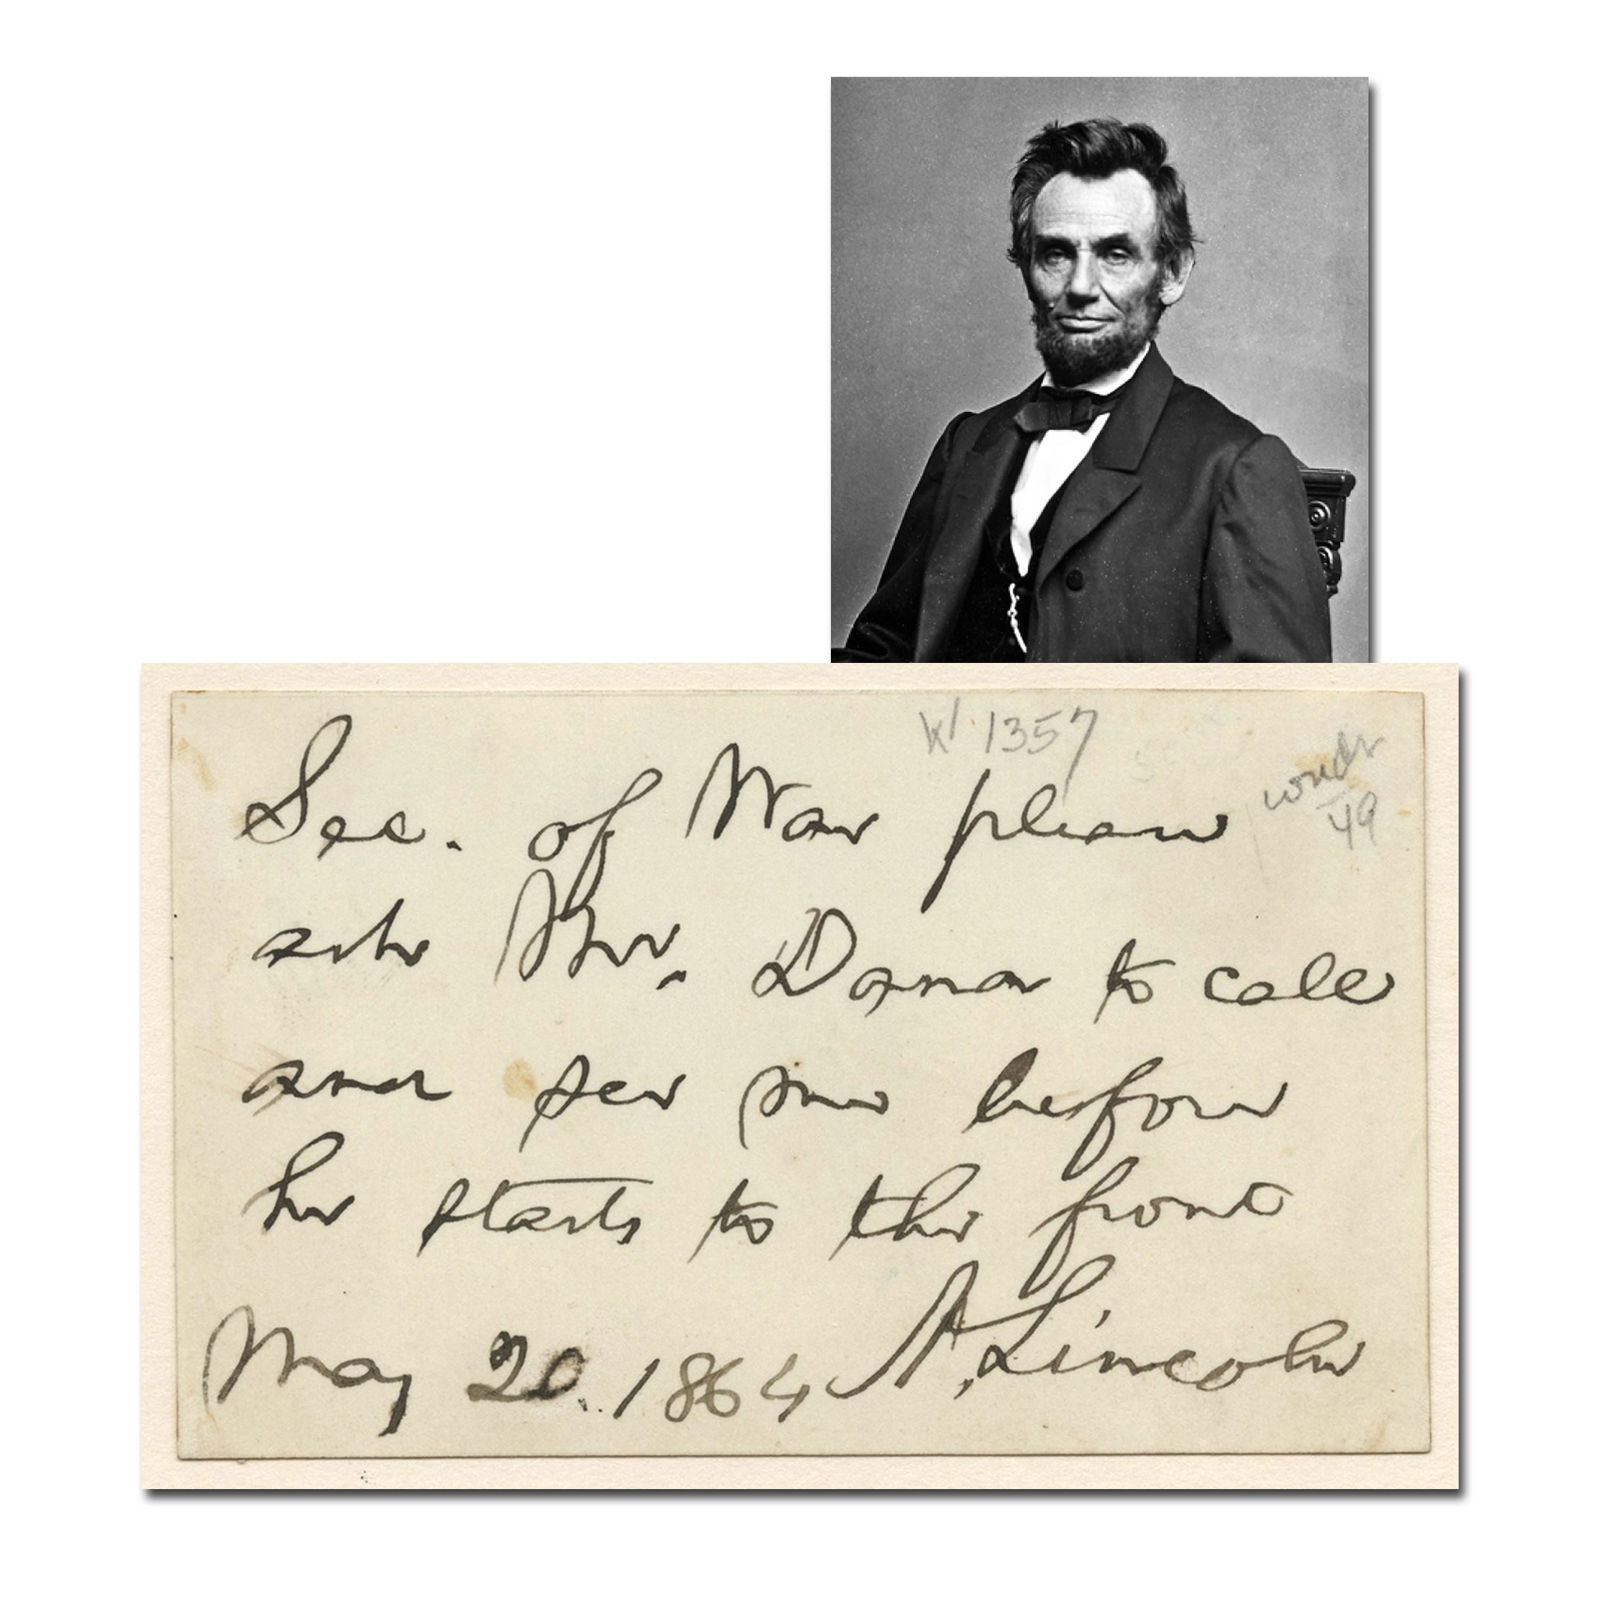 W. 1357
Sec. of War please
49
ask Mr. Dana to call
and see me before
he starts to the front
May 20. 1864 A. Lincoln